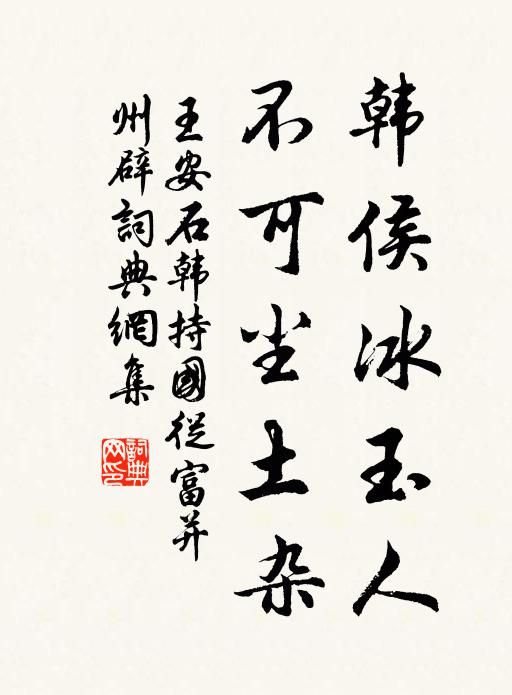 韩侯冰玉人
不可尘土杂
王安石韩持國從富并
州辟詞典網集
詞典網印